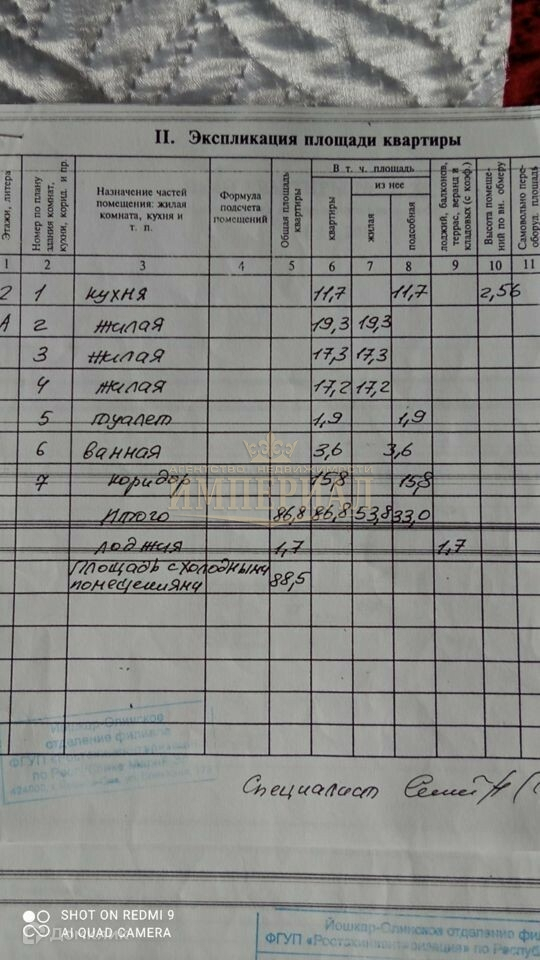 II. Экспликация площади квартиры
Этажи, литера
Номер по плану здания комнат, кухни, корид. и пр.
Назначение частей помещения: жилая комната, кухня и т. п.
Формула подсчета помещений
Общая площадь квартиры
В т. ч. площадь
из нее
квартиры
жилая
подсобная
лоджий, балконов, террас, веранд и кладовых (с коэф.)
Высота помещений по вн. обмеру
Самовольно переоборуд. площадь
1 2 3 4 5 6 7 8 9 10 11
2 1 кухня 11,7 11,7 2,56
А 2 жилая 19,3 19,3
3 жилая 17,3 17,3
4 жилая 17,2 17,2
5 туалет 1,9 1,9
6 ванная 3,6 3,6
АГЕНТСТВО НЕДВИЖИМОСТИ
7 коридор 15,8 15,8
ИМПЕРИАЛ
Итого 86,8 86,8 53,8 33,0
лоджия 1,7 1,7
Площадь с холодными
помещениями 88,5
Йошкар-Олинское
отделение филиала
ФГУП
по Республике Марий Эл
Специалист
SHOT ON REDMI 9
AI QUAD CAMERA
Йошкар-Олинское отделение фил
ФГУП «Ростехинвентаризация» по Респуб